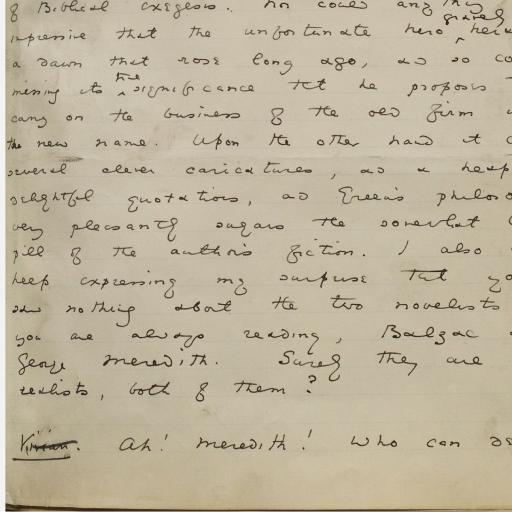 of Biblical exegesis. No could anything
gravely
impressive that the unfortunate hero heral
a dawn that rose long ago, and so co
the
missing its significance that he proposes t
carry on the business of the old firm u
the new name. Upon the other hand it c
several clever caricatures, and a heap
delightful quotations, and Green's philoso
very pleasantly sugars the somewhat b
pill of the author's fiction. I also c
help expressing my surprise that yo
said nothing about the two novelists
you are always reading, Balzac a
George Meredith. Surely they are
realists, both of them?
Vivian. Ah! Meredith! Who can de